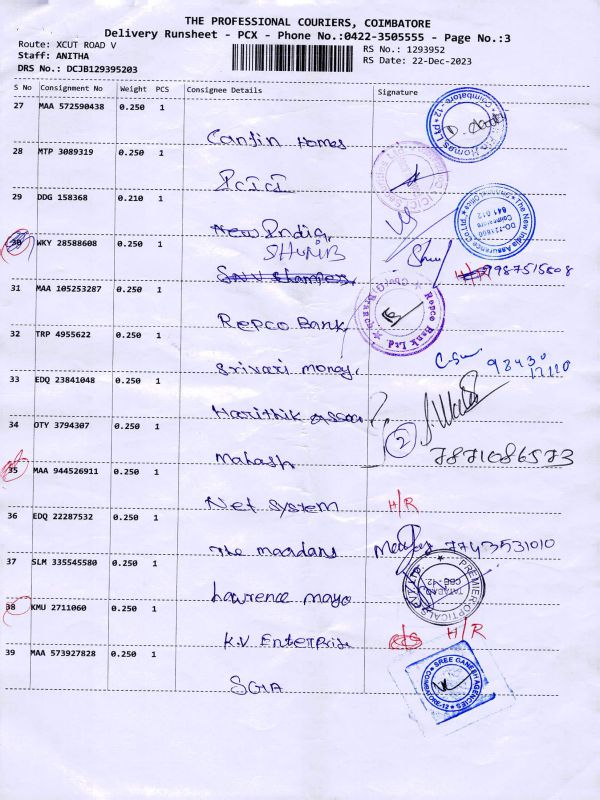 THE PROFESSIONAL COURIERS, COIMBATORE
Delivery Runsheet - PCX - Phone No.:0422-3505555 - Page No.:3
Route: XCUT ROAD V
RS No.: 1293952
Staff: ANITHA
RS Date: 22-Dec-2023
DRS No.: DCJB129395203
S No Consignment No Weight PCS Consignee Details Signature
27 MAA 572590438 0.250 1
Canfin Homes
28 MTP 3089319 0.250 1
ICICI
29 DDG 158368 0.210 1
New India
30 WKY 28588608 0.250 1
H/R
31 MAA 105253287 0.250 1
Repco Bank
Repco Bank Ltd.
32 TRP 4955622 0.250 1
Srivari money
98430
12120
33 EDQ 23841048 0.250 1
Harithik
34 OTY 3794307 0.250 1
2
7871086573
35 MAA 944526911 0.250 1
Net System H/R
36 EDQ 22287532 0.250 1
The 7743531010
37 SLM 335545580 0.250 1
Lawrence mayo
PREMIER OPTICALS
38 KMU 2711060 0.250 1
K.V. Enterprise H/R
39 MAA 573927828 0.250 1
SREE GANESH AGENCIES
COIMBATORE-12